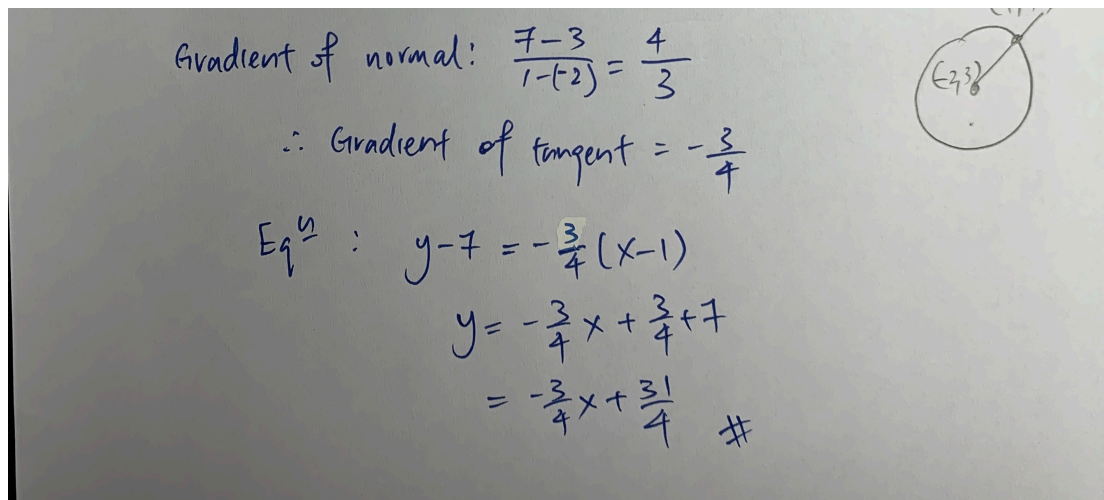 Gradient of normal: \frac{7-3}{1-(-2)} = \frac{4}{3}
(-2,3)
∴ Gradient of tangent = -\frac{3}{4}
Eqⁿ : y-7 = -\frac{3}{4}(x-1)
y = -\frac{3}{4}x + \frac{3}{4} + 7
= -\frac{3}{4}x + \frac{31}{4} #